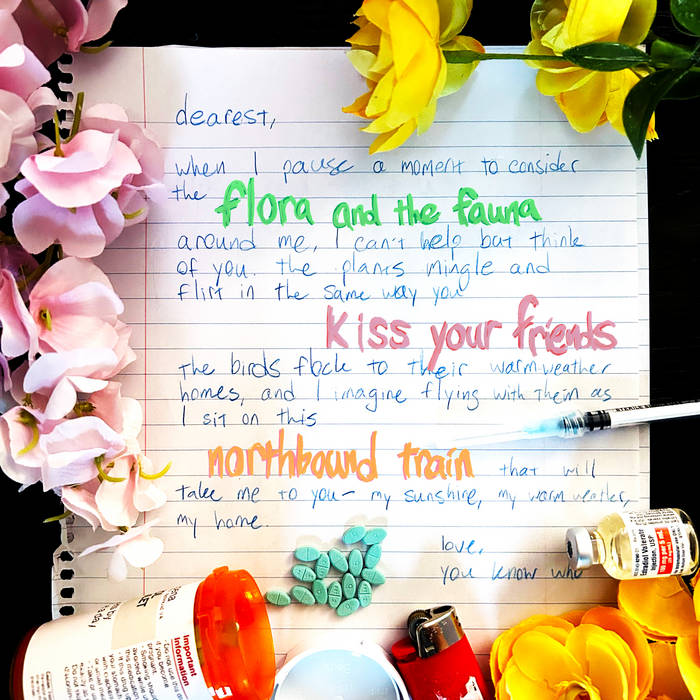 dearest,
when I pause a moment to consider
the flora and the fauna
around me, I can't help but think
of you. the plants mingle and
flirt in the same way you
kiss your friends
the birds flock to their warm-weather
homes, and I imagine flying with them as
I sit on this
northbound train that will
take me to you- my sunshine, my warm weather,
my home.
love,
you know who
Estradiol Valerate
Injection, USP
Important
Information